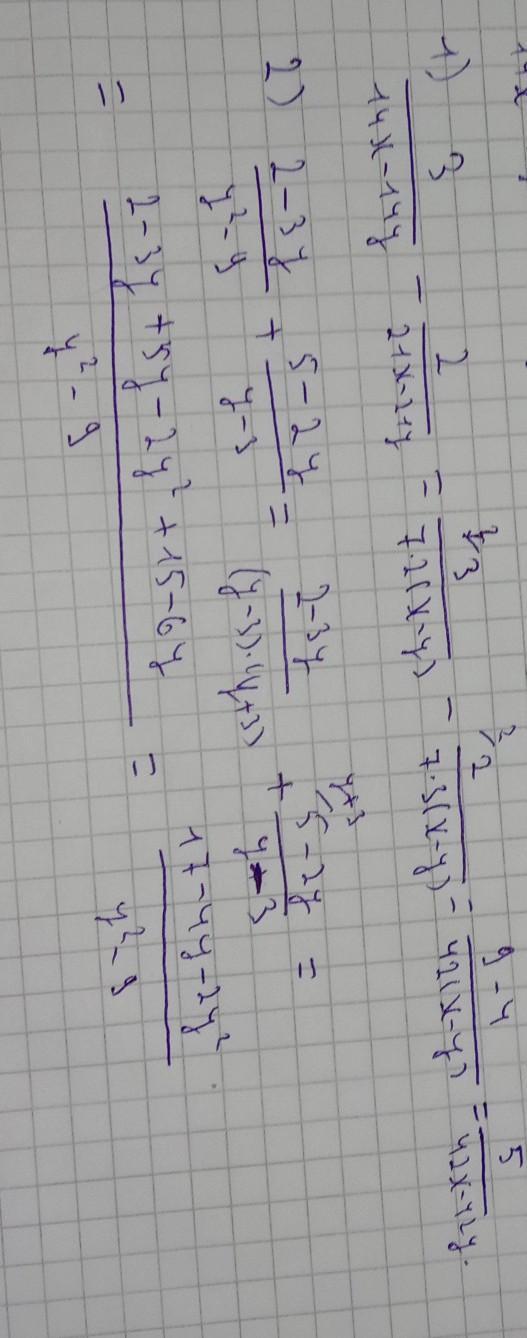 14x
1) 3/(14x-14y) - 2/(21x-21y) = 3\3/(7·2(x-y)) - 2\2/(7·3(x-y)) = (9-4)/(42(x-y)) = 5/(42x-42y).
2) (2-3y)/(y²-9) + (5-2y)/(y-3) = (2-3y)/((y-3)·(y+3)) + y+3\(5-2y)/(y-3) =
= (2-3y+5y-2y²+15-6y)/(y²-9) = (17-4y-2y²)/(y²-9)